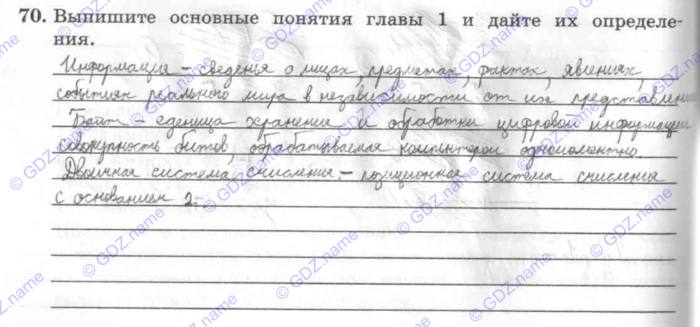 70. Выпишите основные понятия главы 1 и дайте их определе-
ния.
Информация – сведенья о лицах, предметах, фактах, явлениях,
событиях реального мира в независимости от их представлен
Байт – еденица хранения и обработки цифровой информации
совокупность битов, обрабатываемая компьютером одномоментно.
Двоичная система счисления – позиционная система счисления
с основанием 2.
© GDZ.name